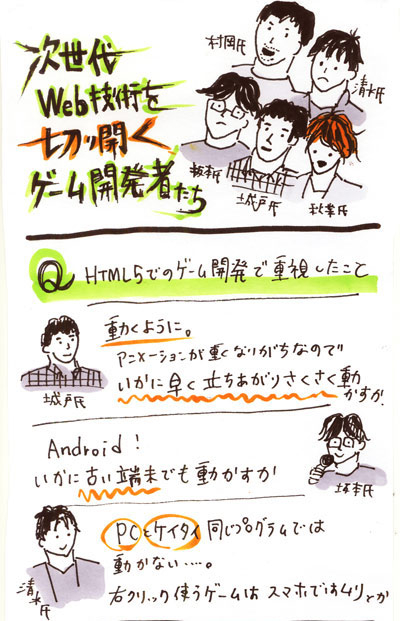 次世代
Web技術を
切り開く
ゲーム開発者たち
村岡氏
清水氏
坂本氏
城戸氏
秋葉氏
Q HTML5でのゲーム開発で重視したこと
動くように。
アニメーションが重くなりがちなので
いかに早く立ちあがりさくさく動
かすか.
城戸氏
Android!
いかに古い端末でも動かすか
坂本氏
PCとケイタイ同じプログラムでは
動かない…。
右クリック使うゲームはスマホではムリとか
清水氏